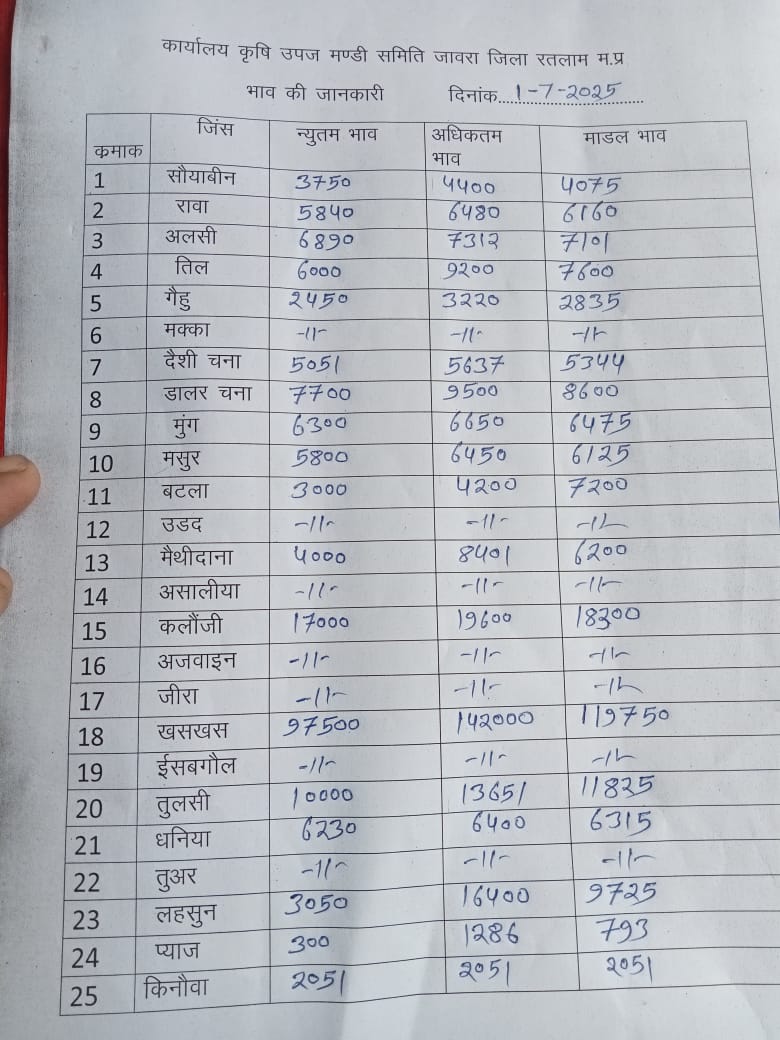 कार्यालय कृषि उपज मण्डी समिति जावरा जिला रतलाम म.प्र
भाव की जानकारी दिनांक....1-7-2025
कमाक जिंस न्युतम भाव अधिकतम भाव माडल भाव
1 सौयाबीन 3750 4400 4075
2 रावा 5840 6480 6160
3 अलसी 6890 7312 7101
4 तिल 6000 9200 7600
5 गैहु 2450 3220 2835
6 मक्का -11- -11- -11-
7 दैशी चना 5051 5637 5344
8 डालर चना 7700 9500 8600
9 मुंग 6300 6650 6475
10 मसुर 5800 6450 6125
11 बटला 3000 4200 7200
12 उडद -11- -11- -11-
13 मैथीदाना 4000 8401 6200
14 असालीया -11- -11- -11-
15 कलौंजी 17000 19600 18300
16 अजवाइन -11- -11- -11-
17 जीरा -11- -11- -11-
18 खसखस 97500 142000 119750
19 ईसबगौल -11- -11- -11-
20 तुलसी 10000 13651 11825
21 धनिया 6230 6400 6315
22 तुअर -11- -11- -11-
23 लहसुन 3050 16400 9725
24 प्याज 300 1286 793
25 किनौवा 2051 2051 2051